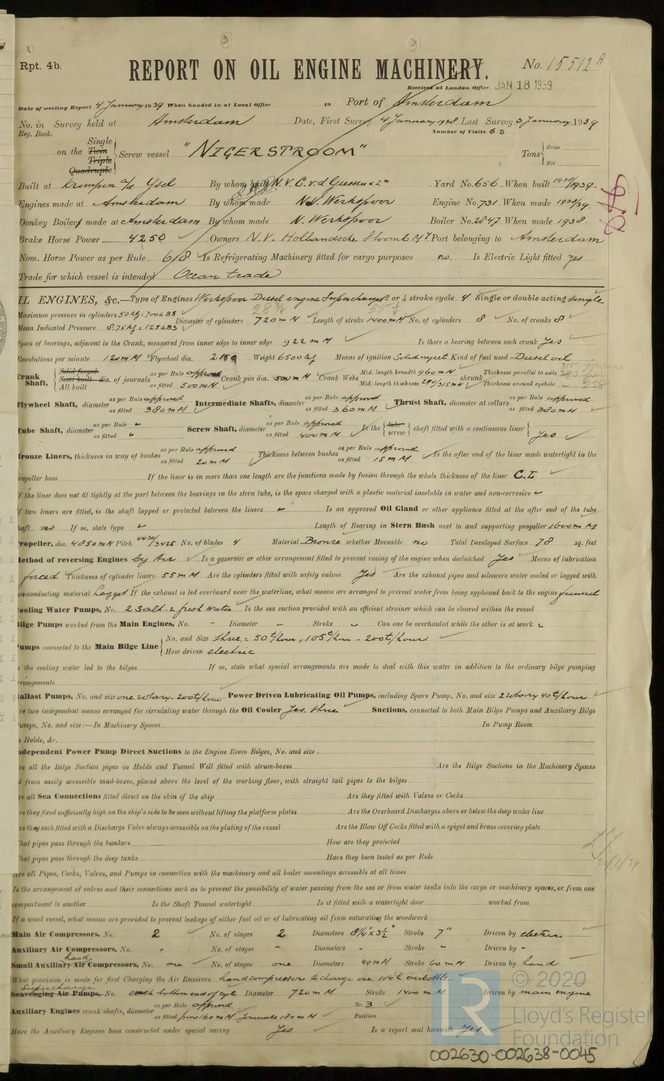 Rpt. 4b.
REPORT ON OIL ENGINE MACHINERY.
No. 15512A
Received at London Office JAN 18 1939
Date of writing Report 4 January 1939 When handed in at Local Office 19 Port of Amsterdam
No. in Survey held at Amsterdam Date, First Survey 4 January 1938 Last Survey 3 January 1939
Reg. Book. Number of Visits 60
Single
on the Twin Triple Quadruple Screw vessel "NIGERSTROOM" Tons Gross Net
Built at Krimpen a/d Ysel By whom built N.V. C.v.d. Giessen & Zn Yard No. 656 When built 1938/1939
Engines made at Amsterdam By whom made N.V. Werkspoor Engine No. 731 When made 1938/39
Donkey Boilers made at Amsterdam By whom made N. Werkspoor Boiler No. 2847 When made 1938
Brake Horse Power 4250 Owners N.V. Hollandsche Stoomb My Port belonging to Amsterdam
Nom. Horse Power as per Rule 618 Is Refrigerating Machinery fitted for cargo purposes no. Is Electric Light fitted yes
Trade for which vessel is intended Ocean trade
IL ENGINES, &c.—Type of Engines Werkspoor Diesel engine Supercharged 2 or 4 stroke cycle 4 Single or double acting single
Maximum pressure in cylinders Diameter of cylinders 720 mM Length of stroke 1400 mM No. of cylinders 8 No. of cranks 8
Mean Indicated Pressure
Span of bearings, adjacent to the Crank, measured from inner edge to inner edge 922 mM Is there a bearing between each crank Yes
Revolutions per minute 120 Flywheel dia. Weight 6500 kg Means of ignition Solid inject Kind of fuel used Diesel oil
Crank Shaft, Solid forged Semi built All built dia. of journals as per Rule approved as fitted 500 mM Crank pin dia. 500 mM Crank Webs Mid. length breadth 960 mM Mid. length thickness shrunk Thickness parallel to axis Thickness around eyehole
Flywheel Shaft, diameter as per Rule approved as fitted 380 mM Intermediate Shafts, diameter as per Rule approved as fitted 360 mM Thrust Shaft, diameter at collars as per Rule approved as fitted 380 mM
Tube Shaft, diameter as per Rule as fitted Screw Shaft, diameter as per Rule approved as fitted 400 mM Is the tube screw shaft fitted with a continuous liner Yes
Bronze Liners, thickness in way of bushes as per Rule approved as fitted 20 mM Thickness between bushes as per Rule approved as fitted 15 mM Is the after end of the liner made watertight in the
propeller boss If the liner is in more than one length are the junctions made by fusion through the whole thickness of the liner C.L.
If the liner does not fit tightly at the part between the bearings in the stern tube, is the space charged with a plastic material insoluble in water and non-corrosive
If two liners are fitted, is the shaft lapped or protected between the liners Is an approved Oil Gland or other appliance fitted at the after end of the tube
shaft no If so, state type Length of Bearing in Stern Bush next to and supporting propeller 1600 mM
Propeller, dia. 4850 mM Pitch 4430/3425 No. of blades 4 Material Bronze whether Moveable no Total Developed Surface 78 sq. feet
Method of reversing Engines by Air Is a governor or other arrangement fitted to prevent racing of the engine when declutched Yes Means of lubrication
forced Thickness of cylinder liners 55 mM Are the cylinders fitted with safety valves Yes Are the exhaust pipes and silencers water cooled or lagged with
non-conducting material Lagged If the exhaust is led overboard near the waterline, what means are arranged to prevent water from being syphoned back to the engine funnel
Cooling Water Pumps, No. 2 salt-2 fresh water Is the sea suction provided with an efficient strainer which can be cleared within the vessel
Bilge Pumps worked from the Main Engines, No. Diameter Stroke Can one be overhauled while the other is at work
Pumps connected to the Main Bilge Line No. and Size three, = 50t/hour, 105t/hour - 200t/hour
How driven electric
Is the cooling water led to the bilges If so, state what special arrangements are made to deal with this water in addition to the ordinary bilge pumping
arrangements
Ballast Pumps, No. and size one rotary. 200t/hour Power Driven Lubricating Oil Pumps, including Spare Pump, No. and size 2 rotary 40t/hour
Are two independent means arranged for circulating water through the Oil Cooler Yes, three Suctions, connected to both Main Bilge Pumps and Auxiliary Bilge
Pumps, No. and size:—In Machinery Spaces In Pump Room
In Holds, &c.
Independent Power Pump Direct Suctions to the Engine Room Bilges, No. and size.
Are all the Bilge Suction pipes in Holds and Tunnel Well fitted with strum-boxes Are the Bilge Suctions in the Machinery Spaces
led from easily accessible mud-boxes, placed above the level of the working floor, with straight tail pipes to the bilges
Are all Sea Connections fitted direct on the skin of the ship Are they fitted with Valves or Cocks
Are they fixed sufficiently high on the ship's side to be seen without lifting the platform plates Are the Overboard Discharges above or below the deep water line
Are they each fitted with a Discharge Valve always accessible on the plating of the vessel Are the Blow Off Cocks fitted with a spigot and brass covering plate
What pipes pass through the bunkers How are they protected
What pipes pass through the deep tanks Have they been tested as per Rule
Are all Pipes, Cocks, Valves, and Pumps in connection with the machinery and all boiler mountings accessible at all times
Is the arrangement of valves and their connections such as to prevent the possibility of water passing from the sea or from water tanks into the cargo or machinery spaces, or from one
compartment to another Is the Shaft Tunnel watertight Is it fitted with a watertight door worked from
If a wood vessel, what means are provided to prevent leakage of either fuel oil or of lubricating oil from saturating the woodwork
Main Air Compressors, No. 2 No. of stages 2 Diameters 8¼" x 3½" Stroke 7" Driven by electric
Auxiliary Air Compressors, No. No. of stages Diameters Stroke Driven by
Small Auxiliary hand Air Compressors, No. one No. of stages one Diameters 40 mM Stroke 60 mM Driven by hand
What provision is made for first Charging the Air Receivers hand compressor to charge one
Supercharge
Scavenging Air Pumps, No. each bottom end of cyl. Diameter 720 mM Stroke 1400 mM Driven by main engine
Auxiliary Engines crank shafts, diameter as per Rule approved as fitted Nr. 3. Position
Have the Auxiliary Engines been constructed under special survey Yes Is a report sent herewith Yes
© 2020
Lloyd's Register
Foundation
002630-002638-0045